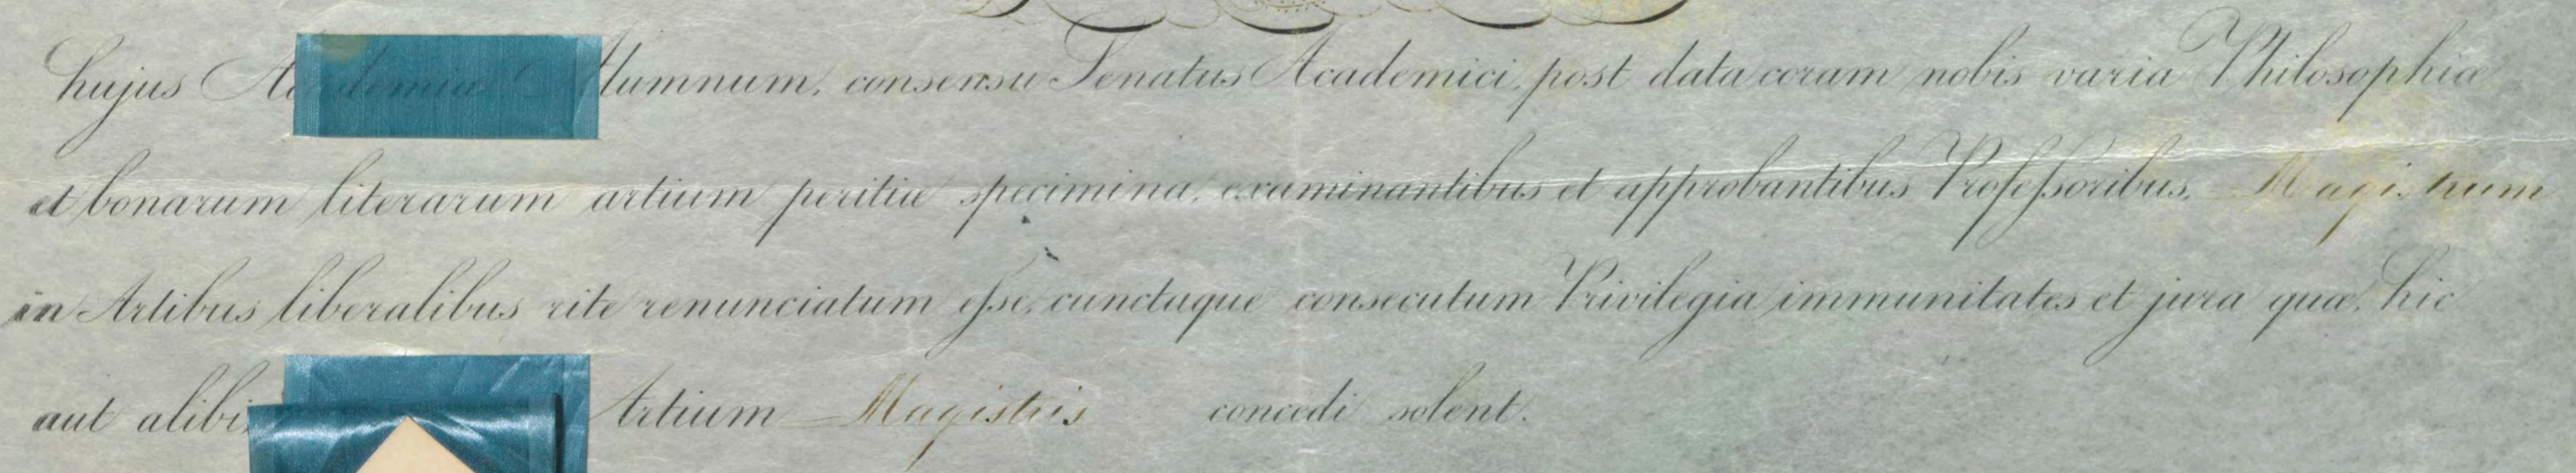 hujus Academiæ Alumnum, consensu Senatus Academici, post data coram nobis varia Philosophiæ
et bonarum literarum artium peritiæ specimina, examinantibus et approbantibus Professoribus, Magistrum
in Artibus liberalibus rite renunciatum esse, cunctaque consecutum Privilegia immunitates et jura quæ, hic
aut alibi, Artium Magistris concedi solent.